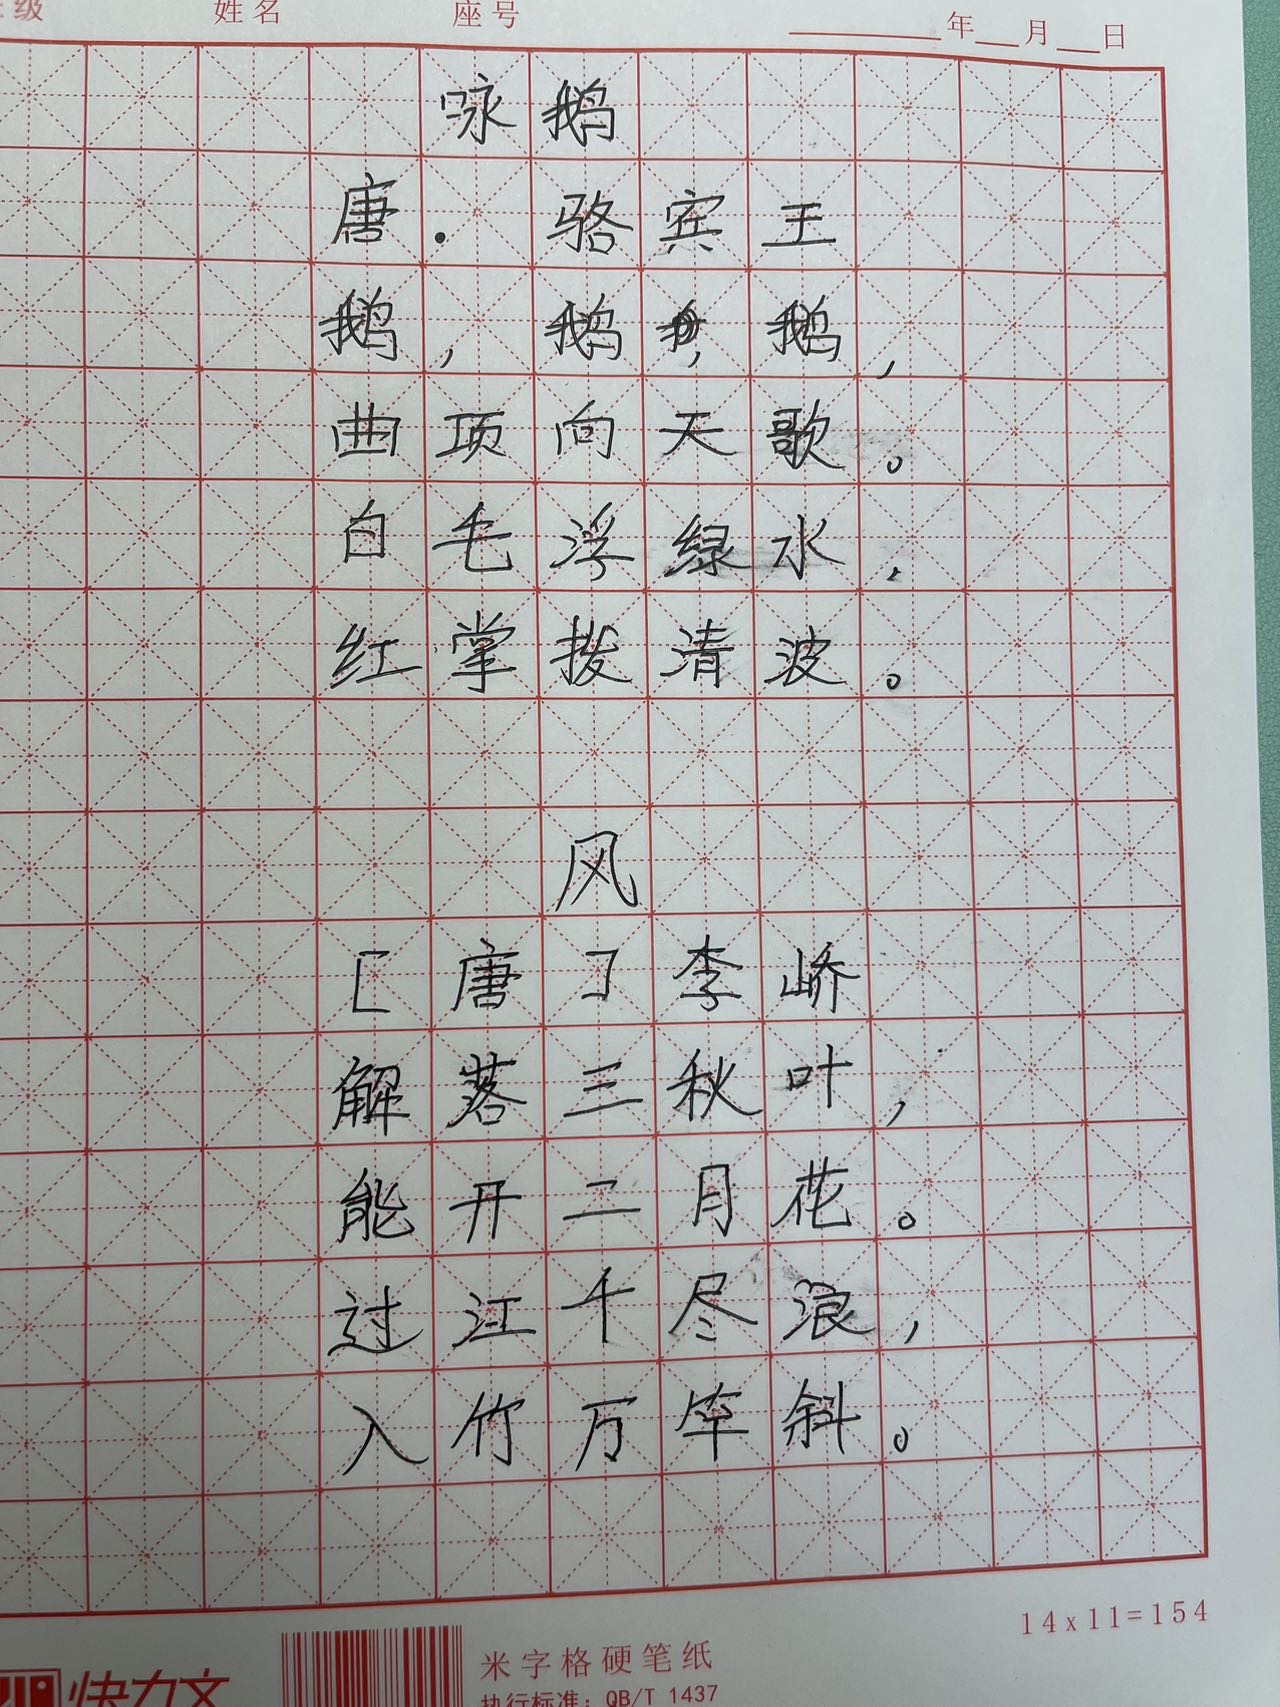 级 姓名 座号 年 月 日
咏鹅
唐·骆宾王
鹅,鹅,鹅,
曲项向天歌。
白毛浮绿水,
红掌拨清波。
风
[唐]李峤
解落三秋叶,
能开二月花。
过江千尽浪,
入竹万竿斜。
14x11=154
快力文
米字格硬笔纸
执行标准: QB/T 1437